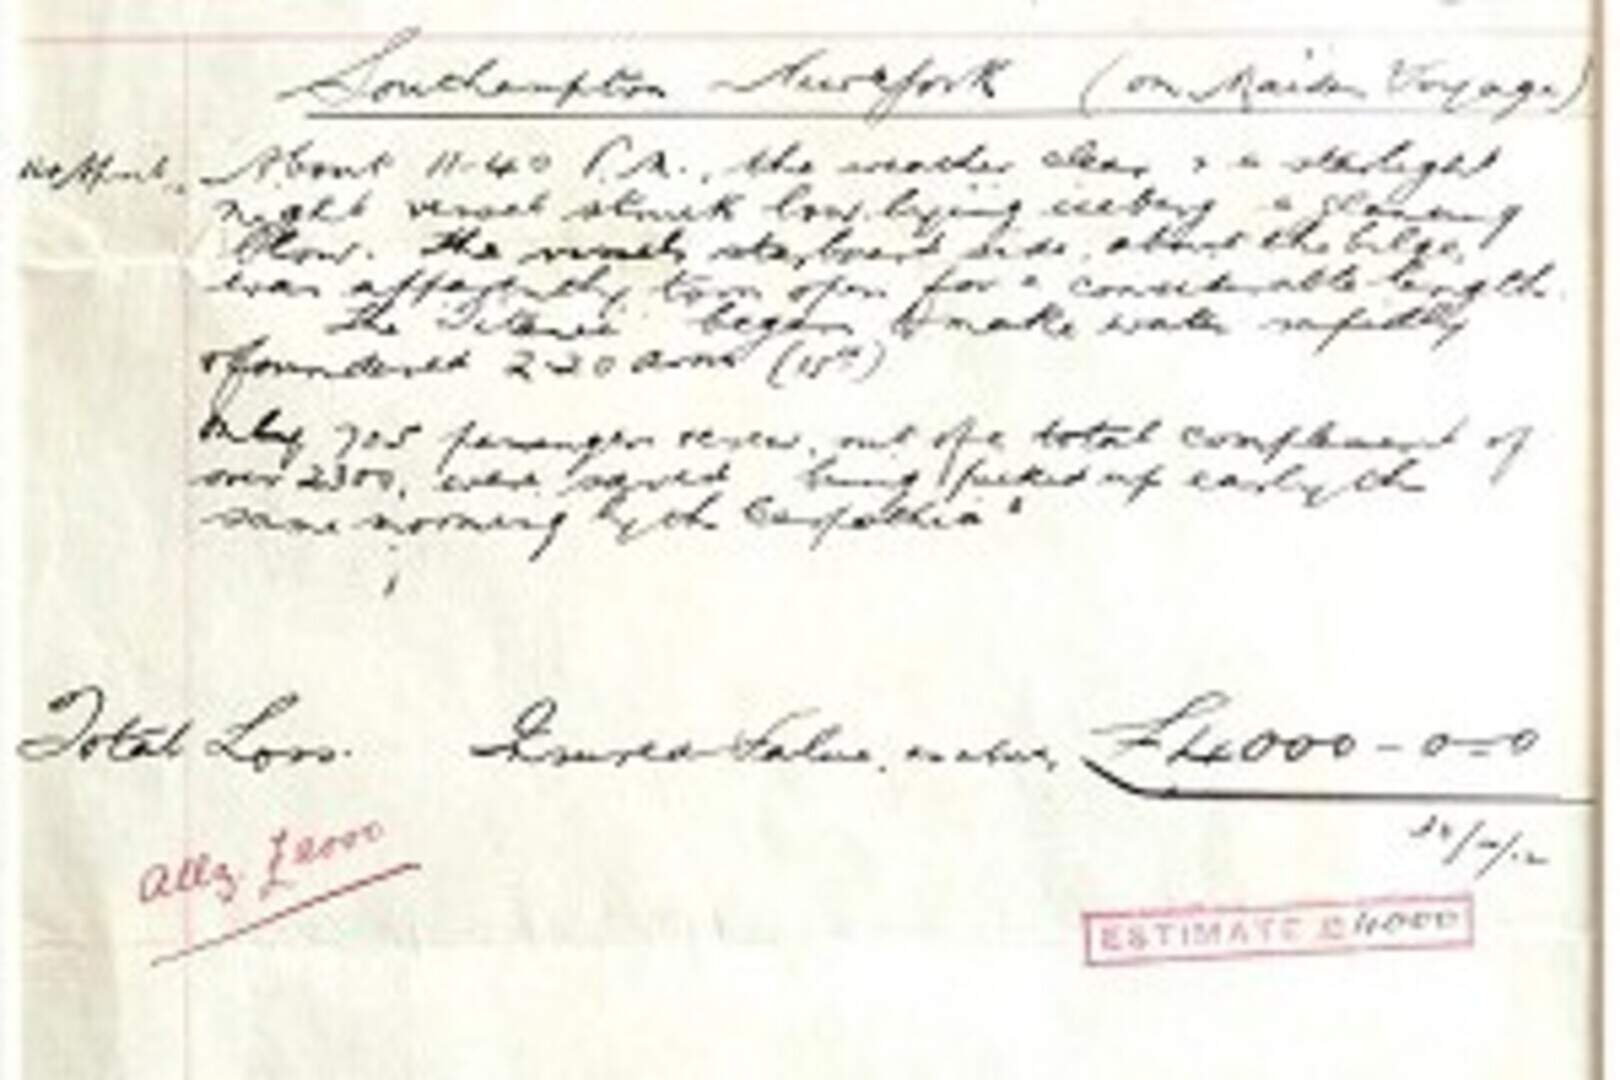 Southampton New York (on Maiden Voyage)
14th April. About 11-40 P.M., the weather clear & a starlight
night vessel struck low lying iceberg a glancing
blow. The vessels starboard side, about the bilge,
was apparently torn open for a considerable length.
The "Titanic" began to make water rapidly
& foundered 2-20 am (15th)
Only 705 passengers & crew, out of a total complement of
over 2300, were saved being picked up early the
same morning by the "Carpathia"
Total Loss. Insured Value, as above, £4000-0-0
/4/12
£4000
ESTIMATE £4000